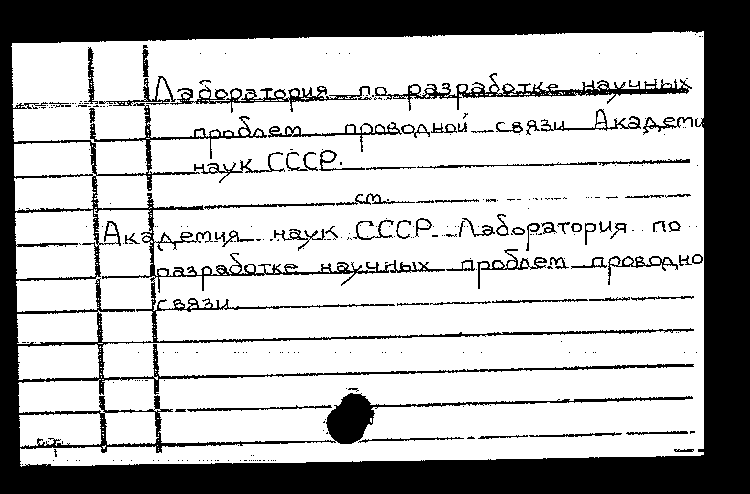 Лаборатория по разработке научных
проблем проводной связи Академи
наук СССР.
см.
Академия наук СССР. Лаборатория по
разработке научных проблем проводно
связи.